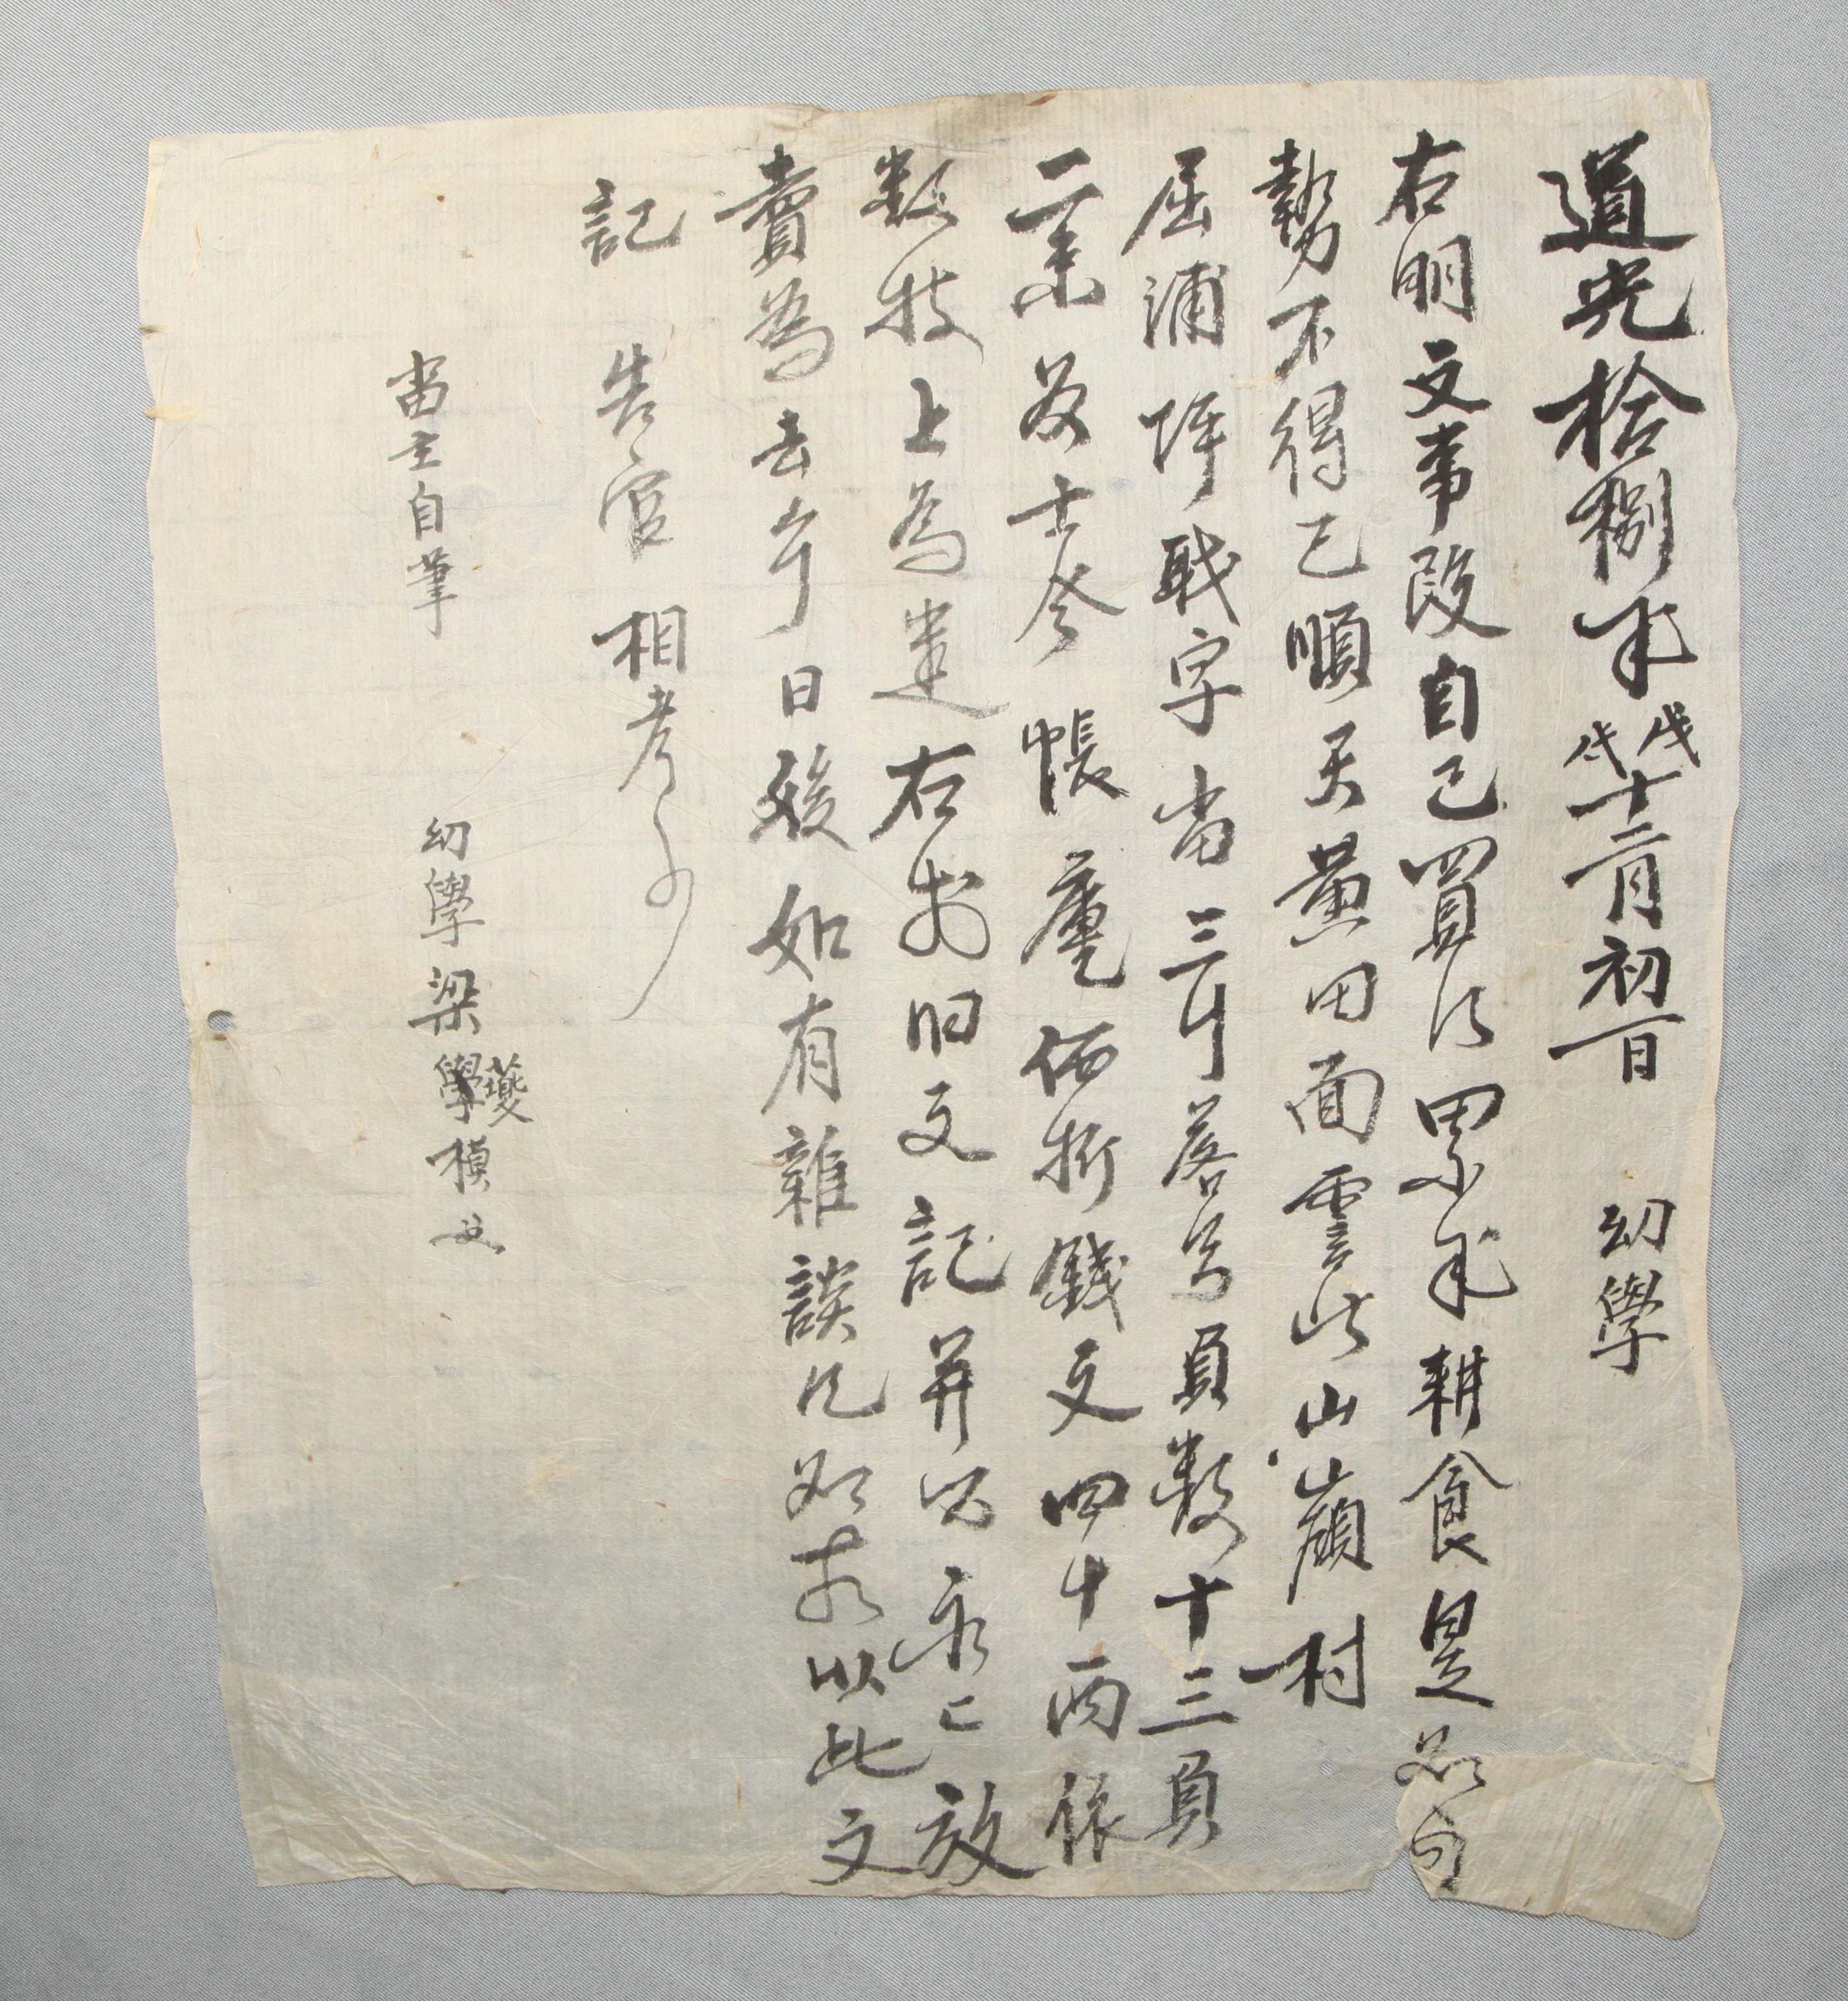 道光拾捌年戊戌十二月初一日 幼學
右明文事段自己買得累年耕食是如可
勢不得已順天黃田面雲此山巓村
屈浦坪戝字畓三斗落只負數十三負
二束㐣庫
帳 伍折錢文四十兩依
數捧上爲遣右前旧文記幷以永永放
賣爲去乎日後如有雜談則以此文
記 告官相考事
畓主自筆 幼學梁學模